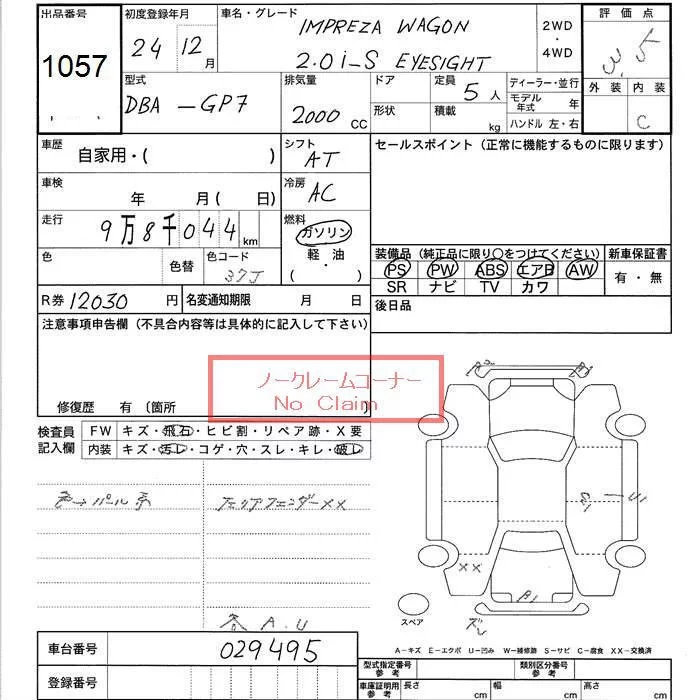 出品番号 初度登録年月 車名・グレード 評価点
1057 24 12月 IMPREZA WAGON 2WD・4WD 3.5
2.0i-S EYESIGHT
型式 排気量 ドア 定員 ディーラー・並行 外装 内装
DBA-GP7 2000 CC 5人 モデル年式 年 C
形状 積載 kg ハンドル 左・右
車歴 自家用・( ) シフト AT セールスポイント (正常に機能するものに限ります)
車検 年 月( 日) 冷房 AC
走行 9万8千044km 燃料 ガソリン
軽・油
( ・ )
色 色替 色コード 37J
装備品 (純正品に限り〇をつけてください) 新車保証書
PS PW ABS エアB AW 有・無
SR ナビ TV カワ
R券 12030円 名変通知期限 月 日 後日品
注意事項申告欄 (不具合内容等は具体的に記入して下さい)
ノークレームコーナー
No Claim
修復歴 有 (箇所
検査員記入欄 FW キズ・飛石・ヒビ割・リペア跡・X要
内装 キズ・汚レ・コゲ・穴・スレ・キレ・破レ
色→パール系 フェリアフェンダーXX
XX
スペア
A.U
A-キズ E-エクボ U-凹み W-補修跡 S-サビ C-腐食 XX-交換済
車台番号 029495
登録番号
型式指定番号 参考 類別区分番号 参考
車庫証明用 参考 長さ cm 幅 cm 高さ cm